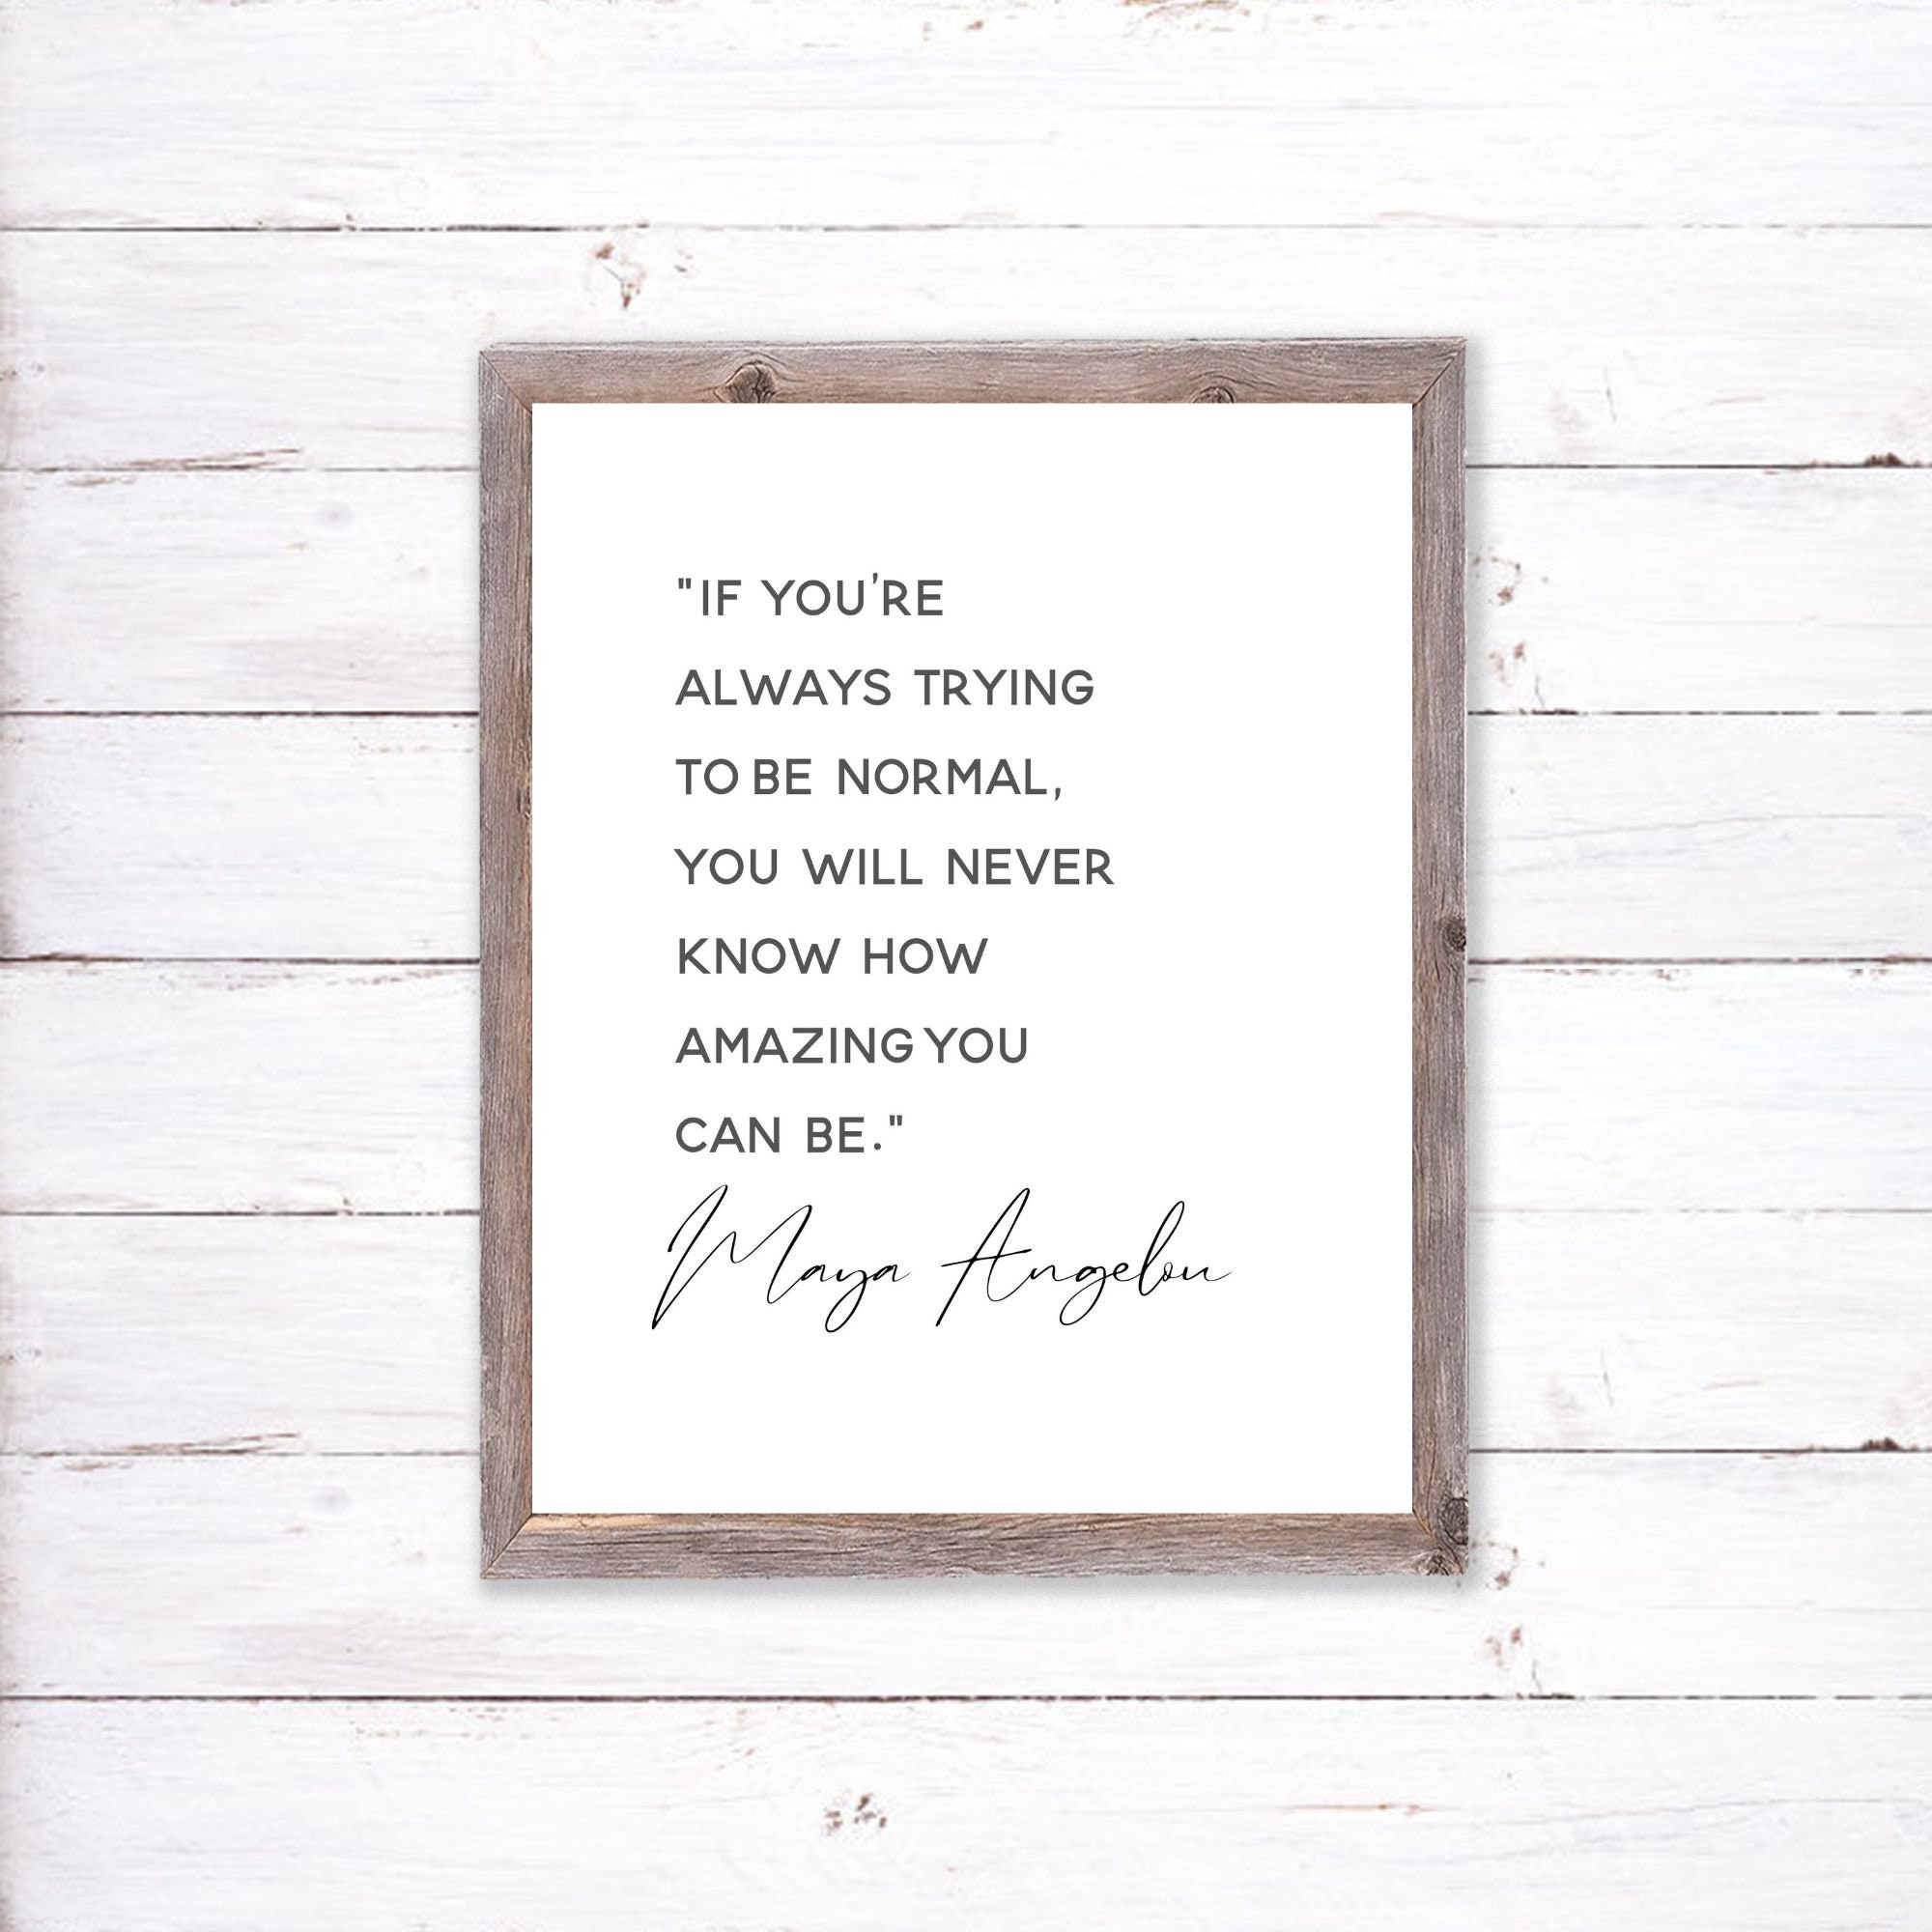 "IF YOU'RE
ALWAYS TRYING
TO BE NORMAL,
YOU WILL NEVER
KNOW HOW
AMAZING YOU
CAN BE."
Maya Angelou